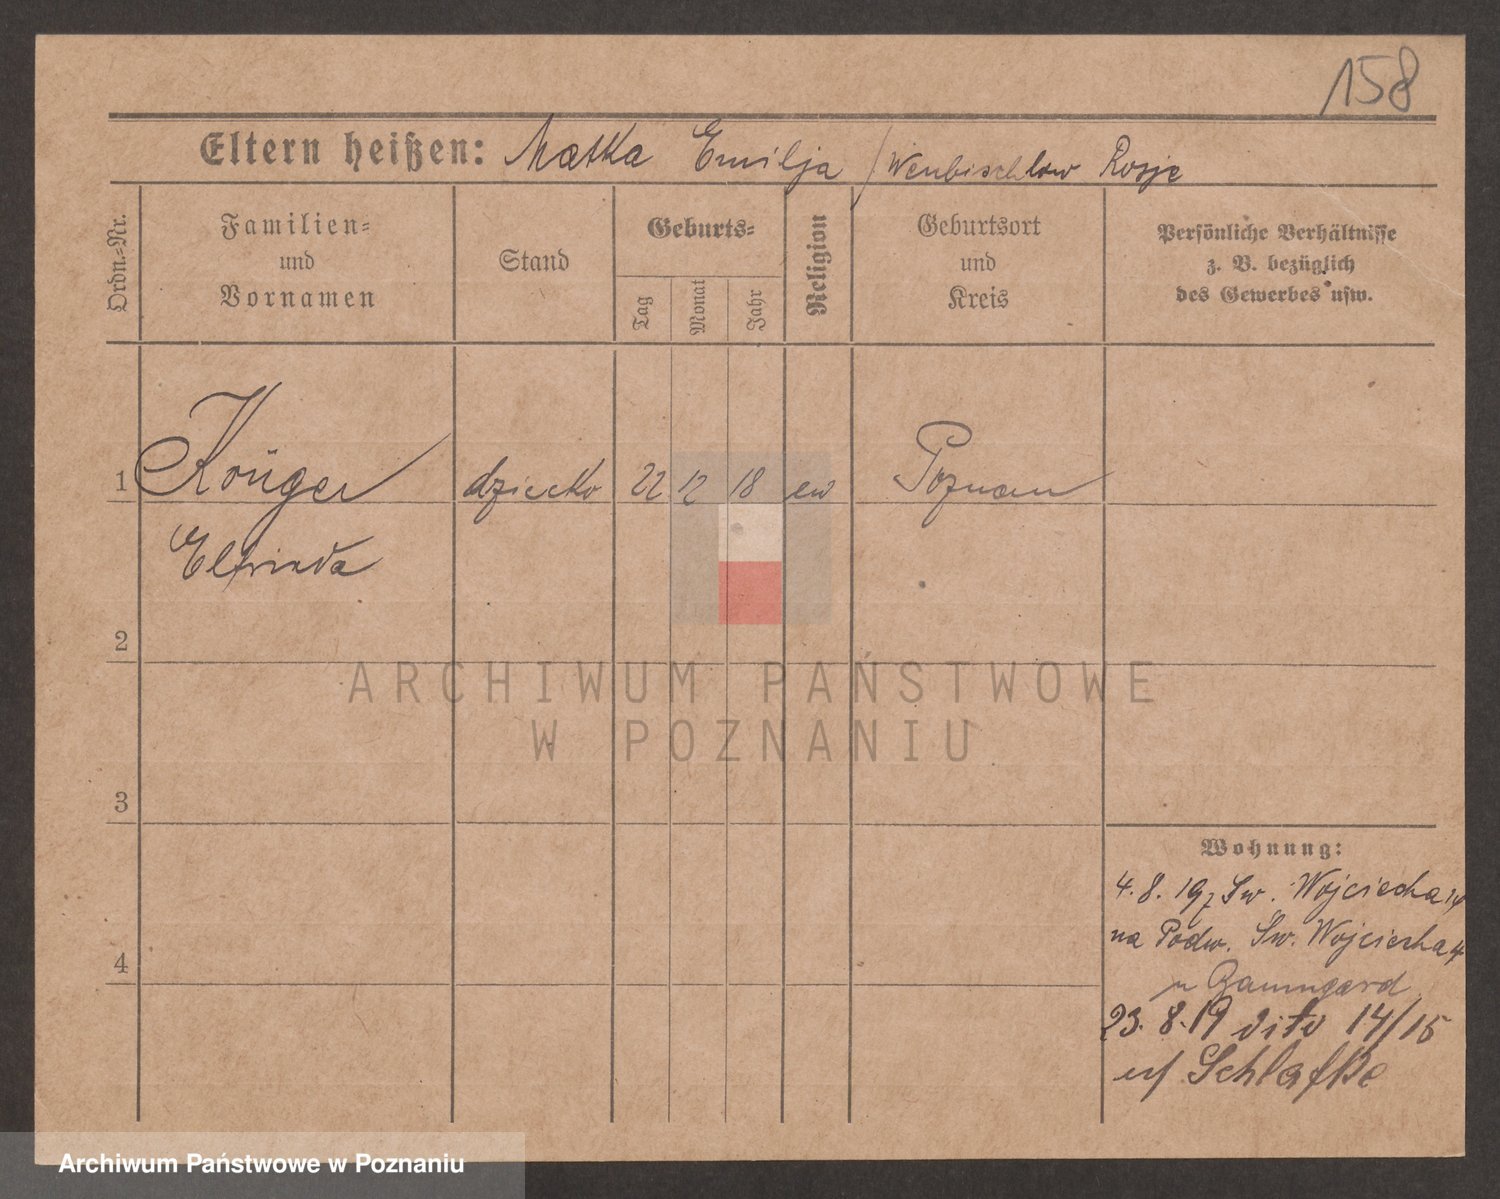 158
Eltern heißen: Matka Emilja / Wenbischlow Rosje
Ordn.-Nr.
Familien- und Vornamen
Stand
Geburts-
Tag
Monat
Jahr
Religion
Geburtsort und Kreis
Persönliche Verhältnisse
z. B. bezüglich
des Gewerbes usw.
1 Krüger dziecko 22 12 18 ew Poznan
Elfrieda
2
ARCHIWUM PAŃSTWOWE
W POZNANIU
3
Wohnung:
4. 8. 19 z Sw. Wojciecha
na Podw. Sw. Wojciecha
4
u Baumgard
23. 8. 19 dito 14/15
Schlafke
Archiwum Państwowe w Poznaniu